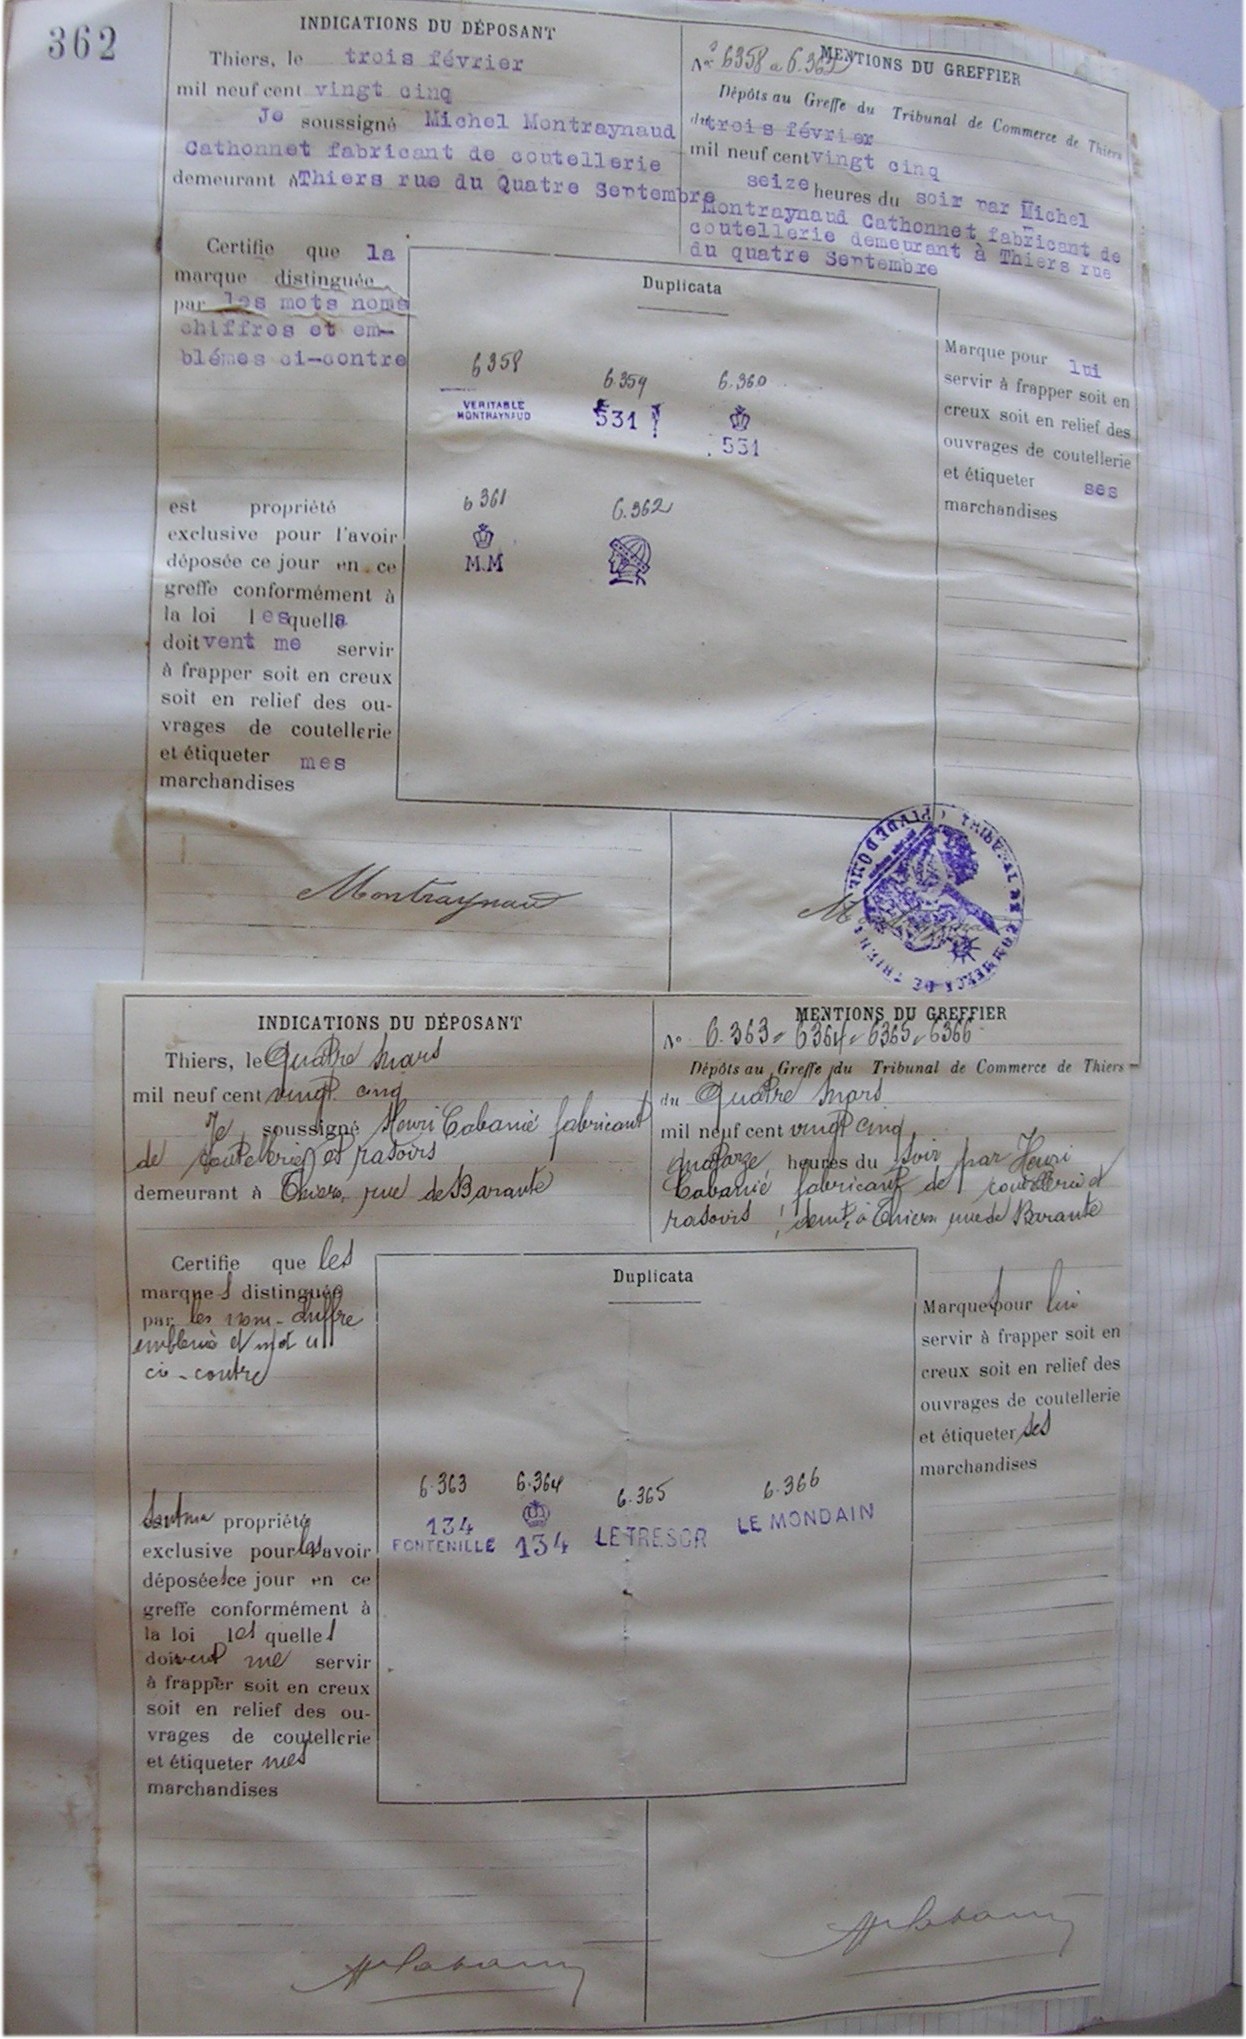 362
INDICATIONS DU DÉPOSANT
Thiers, le trois février
mil neuf cent vingt cinq
Je soussigné Michel Montraynaud
Cathonnet fabricant de coutellerie
demeurant à Thiers rue du Quatre Septembre
MENTIONS DU GREFFIER
Nos 6358 a 6.362
Dépôts au Greffe du Tribunal de Commerce de Thiers
du trois février
mil neuf cent vingt cinq
seize heures du soir par Michel
Montraynaud Cathonnet fabricant de
coutellerie demeurant à Thiers rue
du quatre Septembre
Certifie que la
marque distinguée
par les mots noms
chiffres et em-
blémes ci-contre
est propriété
exclusive pour l'avoir
déposée ce jour en ce
greffe conformément à
la loi lesquella
doitvent me servir
à frapper soit en creux
soit en relief des ou-
vrages de coutellerie
et étiqueter mes
marchandises
Duplicata
6358
6.359
6.360
VERITABLE
MONTRAYNAUD
531
531
6361
6.362
M.M
Marque pour lui
servir à frapper soit en
creux soit en relief des
ouvrages de coutellerie
et étiqueter ses
marchandises
Montraynaud
TRIBUNAL DE COMMERCE DE THIERS PUY DE DOME
INDICATIONS DU DÉPOSANT
Thiers, le Quatre Mars
mil neuf cent vingt cinq
Je soussigné Henri Cabanié fabricant
de coutellerie et rasoirs
demeurant à Thiers, rue de Barante
MENTIONS DU GREFFIER
No 6.363 - 6364 - 6365 - 6366
Dépôts au Greffe du Tribunal de Commerce de Thiers
du Quatre Mars
mil neuf cent vingt cinq
quatorze heures du soir par Henri
Cabanié fabricant de coutellerie et
rasoirs demt à Thiers rue de Barante
Certifie que les
marques distinguée
par les nom - chiffre
emblème et mot
ci-contre
propriété
exclusive pour les avoir
déposées ce jour en ce
greffe conformément à
la loi lesquelles
doivent me servir
à frapper soit en creux
soit en relief des ou-
vrages de coutellerie
et étiqueter mes
marchandises
Duplicata
6.363
6.364
6.365
6.366
134
FONTENILLE
134
LE TRESOR
LE MONDAIN
Marques pour lui
servir à frapper soit en
creux soit en relief des
ouvrages de coutellerie
et étiqueter ses
marchandises